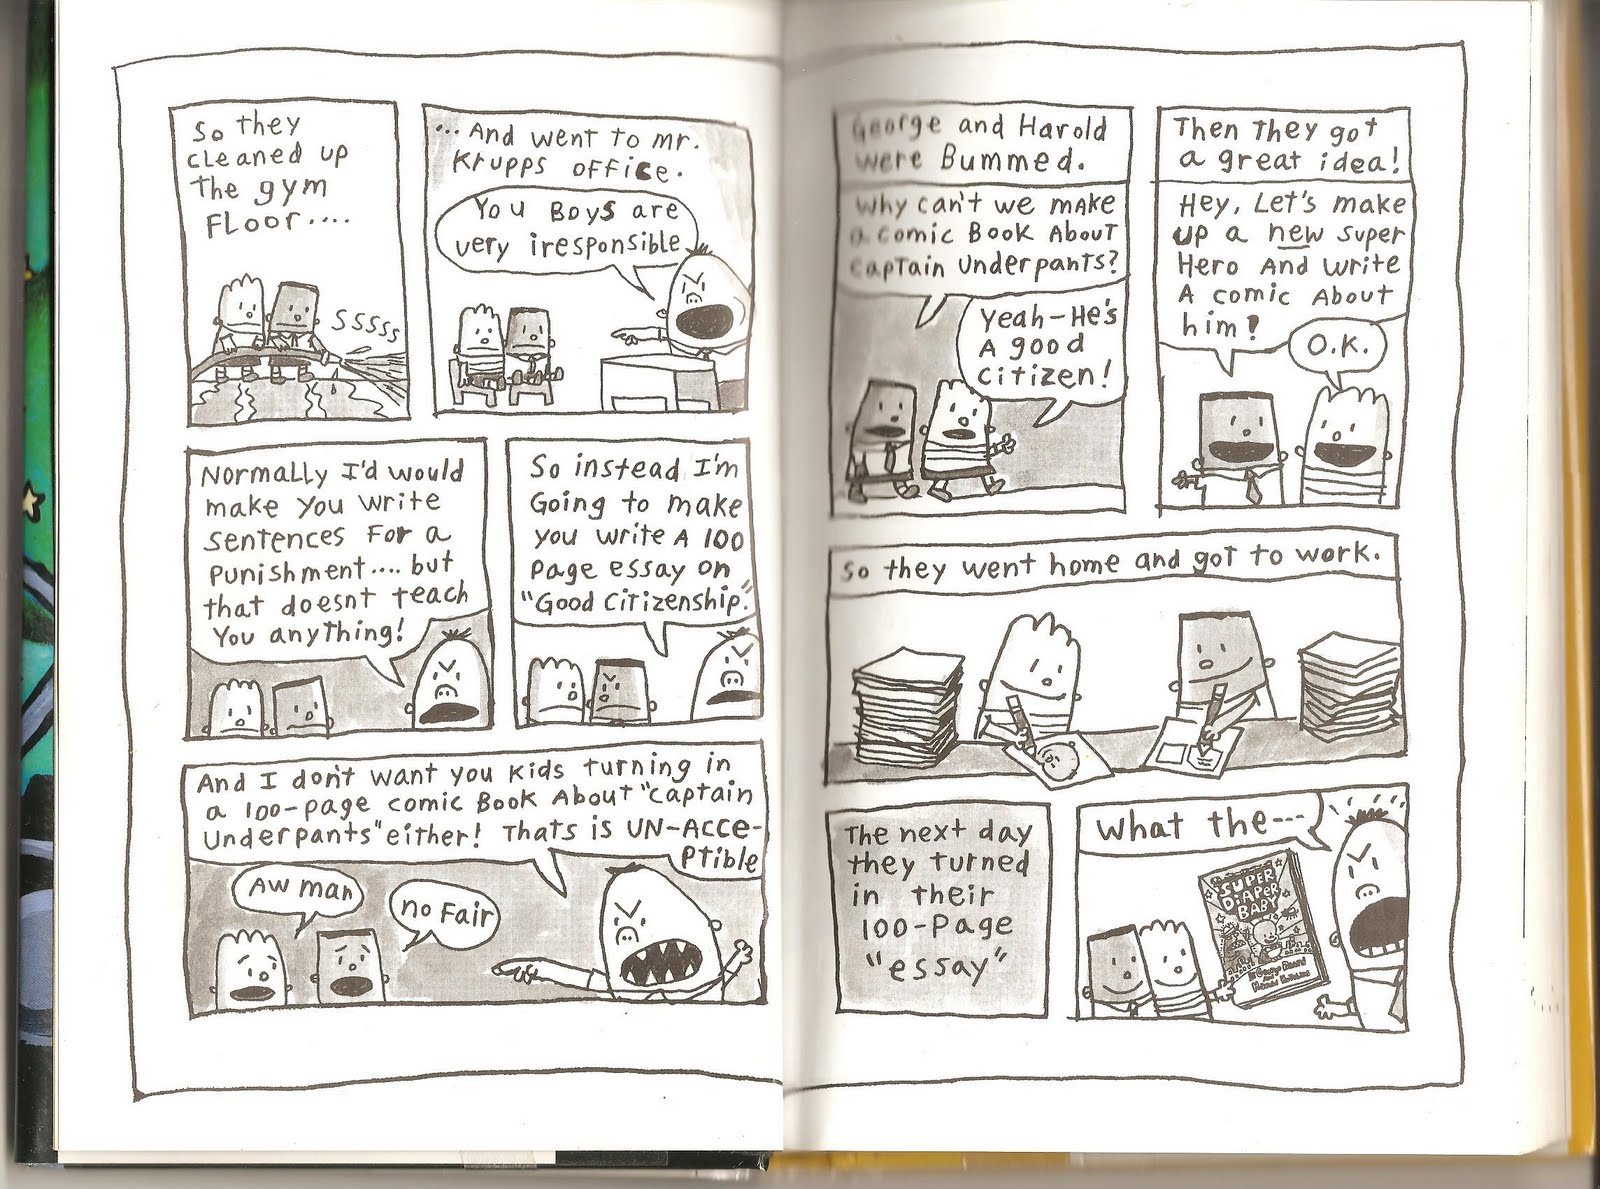 So they
cleaned up
the gym
Floor....
SSSSS
... And went to mr.
Krupps office.
You Boys are
very iresponsible
Normally I'd would
make you write
sentences For a
punishment.... but
that doesnt teach
You anything!
So instead I'm
Going to make
you write A 100
page essay on
"Good Citizenship."
And I don't want you kids turning in
a 100-page comic Book About "Captain
Underpants" either! Thats is UN-Acce-
ptible
Aw man
no Fair
George and Harold
were Bummed.
Why can't we make
a comic Book About
Captain Underpants?
Yeah-He's
A good
citizen!
Then They got
a great idea!
Hey, Let's make
up a new super
Hero And write
A comic About
him!
O.K.
So they went home and got to work.
The next day
they turned
in their
100-Page
"essay"
What the---
SUPER
DIAPER
BABY
By George Beard
and Harold Hutchins